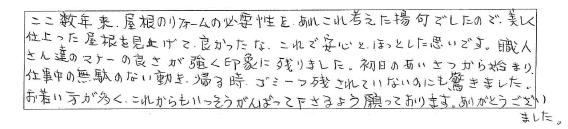 ここ数年来、屋根のリフォームの必要性を、あれこれ考えた揚句でしたので、美しく
仕上った屋根を見上げて、良かったな、これで安心と、ほっとした思いです。職人
さん達のマナーの良さが強く印象に残りました。初日のあいさつから始まり、
仕事中の無駄のない動き、帰る時、ゴミ一つ残されていないのにも驚きました。
お若い方が多く、これからもいっそうがんばって下さるよう願っております。ありがとうござい
ました。